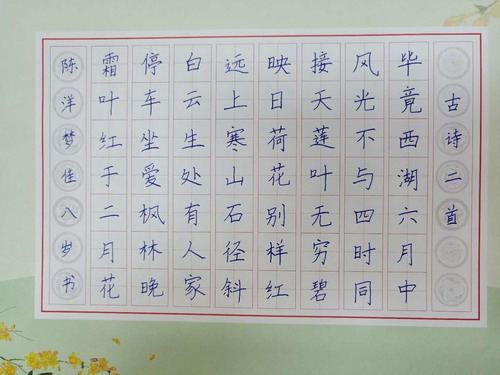 古诗二首
毕竟西湖六月中
风光不与四时同
接天莲叶无穷碧
映日荷花别样红
远上寒山石径斜
白云生处有人家
停车坐爱枫林晚
霜叶红于二月花
陈洋梦佳八岁书